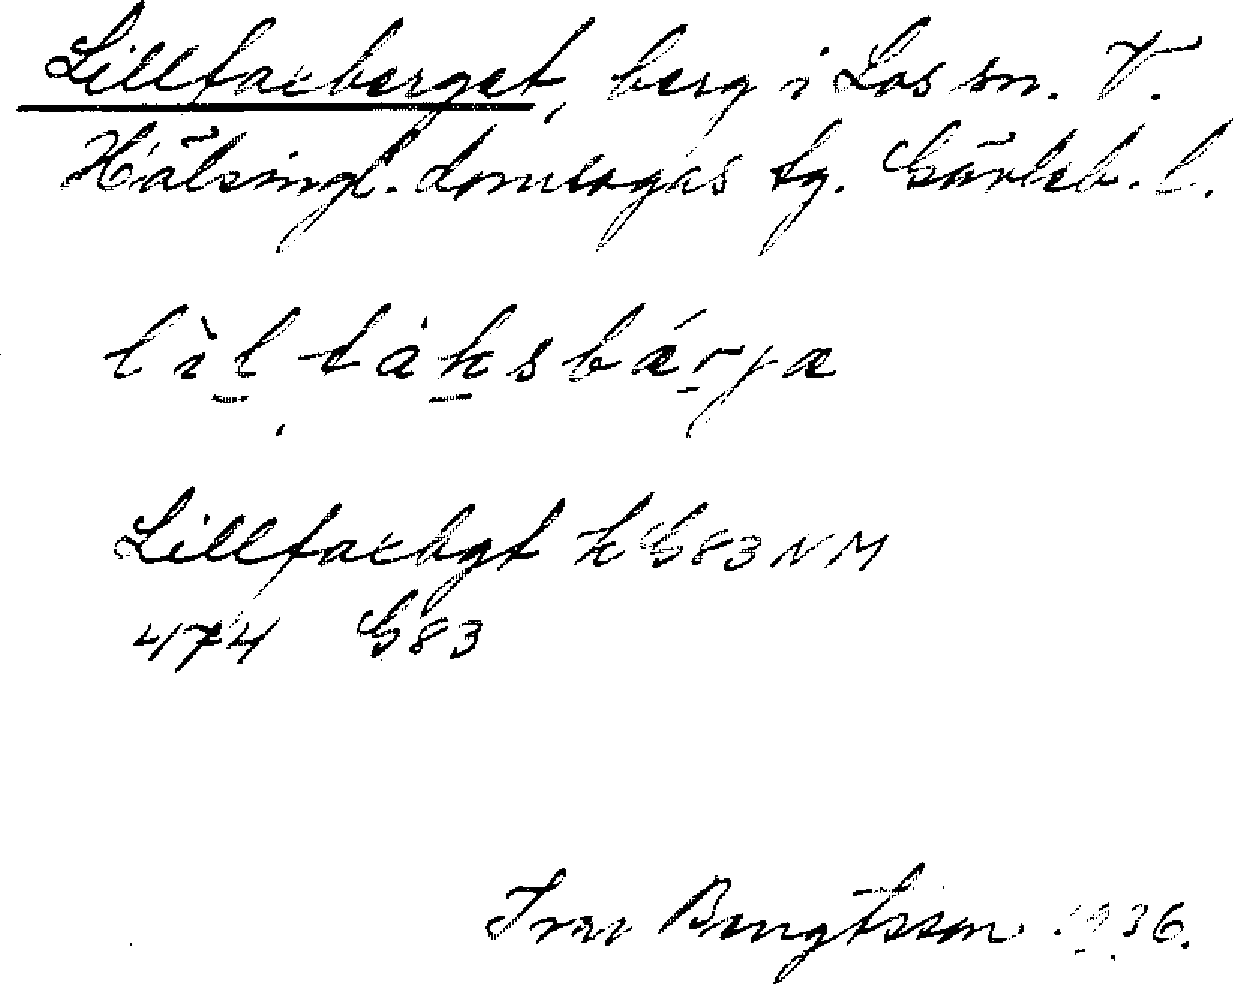 Lilltaxberget, berg i Los sn. V.
Hälsingl. domsagas tg. Gävleb. l.
lìl tàksbárja
Lilltaxbgt k G83NM
474 G83
Ivar Bengtsson 1936.